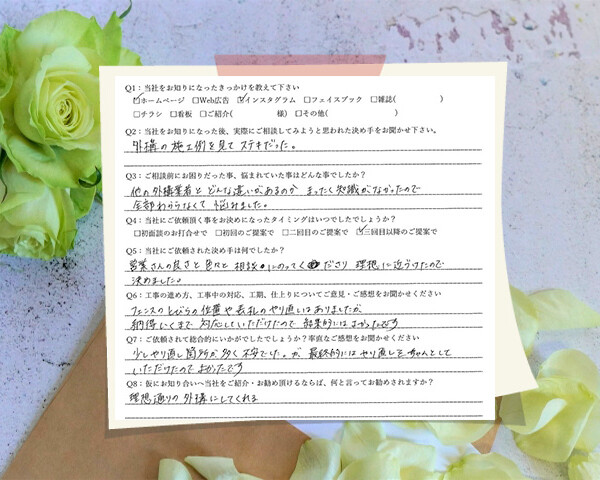 Q1：当社をお知りになったきっかけを教えて下さい
☑ホームページ □Web広告 ☑インスタグラム □フェイスブック □雑誌( )
□チラシ □看板 □ご紹介( 様) □その他( )
Q2：当社をお知りになった後、実際にご相談してみようと思われた決め手をお聞かせ下さい。
外構の施工例を見て ステキだった。
Q3：ご相談前にお困りだった事、悩まれていた事はどんな事でしたか？
他の外構業者と どんな違いがあるのか まったく知識がなかったので
全部わからなくて 悩みました。
Q4：当社にご依頼頂く事をお決めになったタイミングはいつでしたでしょうか？
□初面談のお打合せで □初回のご提案で □二回目のご提案で ☑三回目以降のご提案で
Q5：当社にご依頼された決め手は何でしたか？
営業さんの良さと 色々と 相談にのってくださり 理想に近づけたので
決めました。
Q6：工事の進め方、工事中の対応、工期、仕上りについてご意見・ご感想をお聞かせください
フェンスのとびらの位置や表札のやり直しはありましたが
納得いくまで 対応していただけたので 結果的にはよかったです
Q7：ご依頼されて総合的にいかがでしたでしょうか？率直なご感想をお聞かせください
少しやり直し箇所が多く不安でした。が 最終的にはやり直しをちゃんとして
いただけたので よかったです
Q8：仮にお知り合いへ当社をご紹介・お勧め頂けるならば、何と言ってお勧めされますか？
理想通りの外構にしてくれる